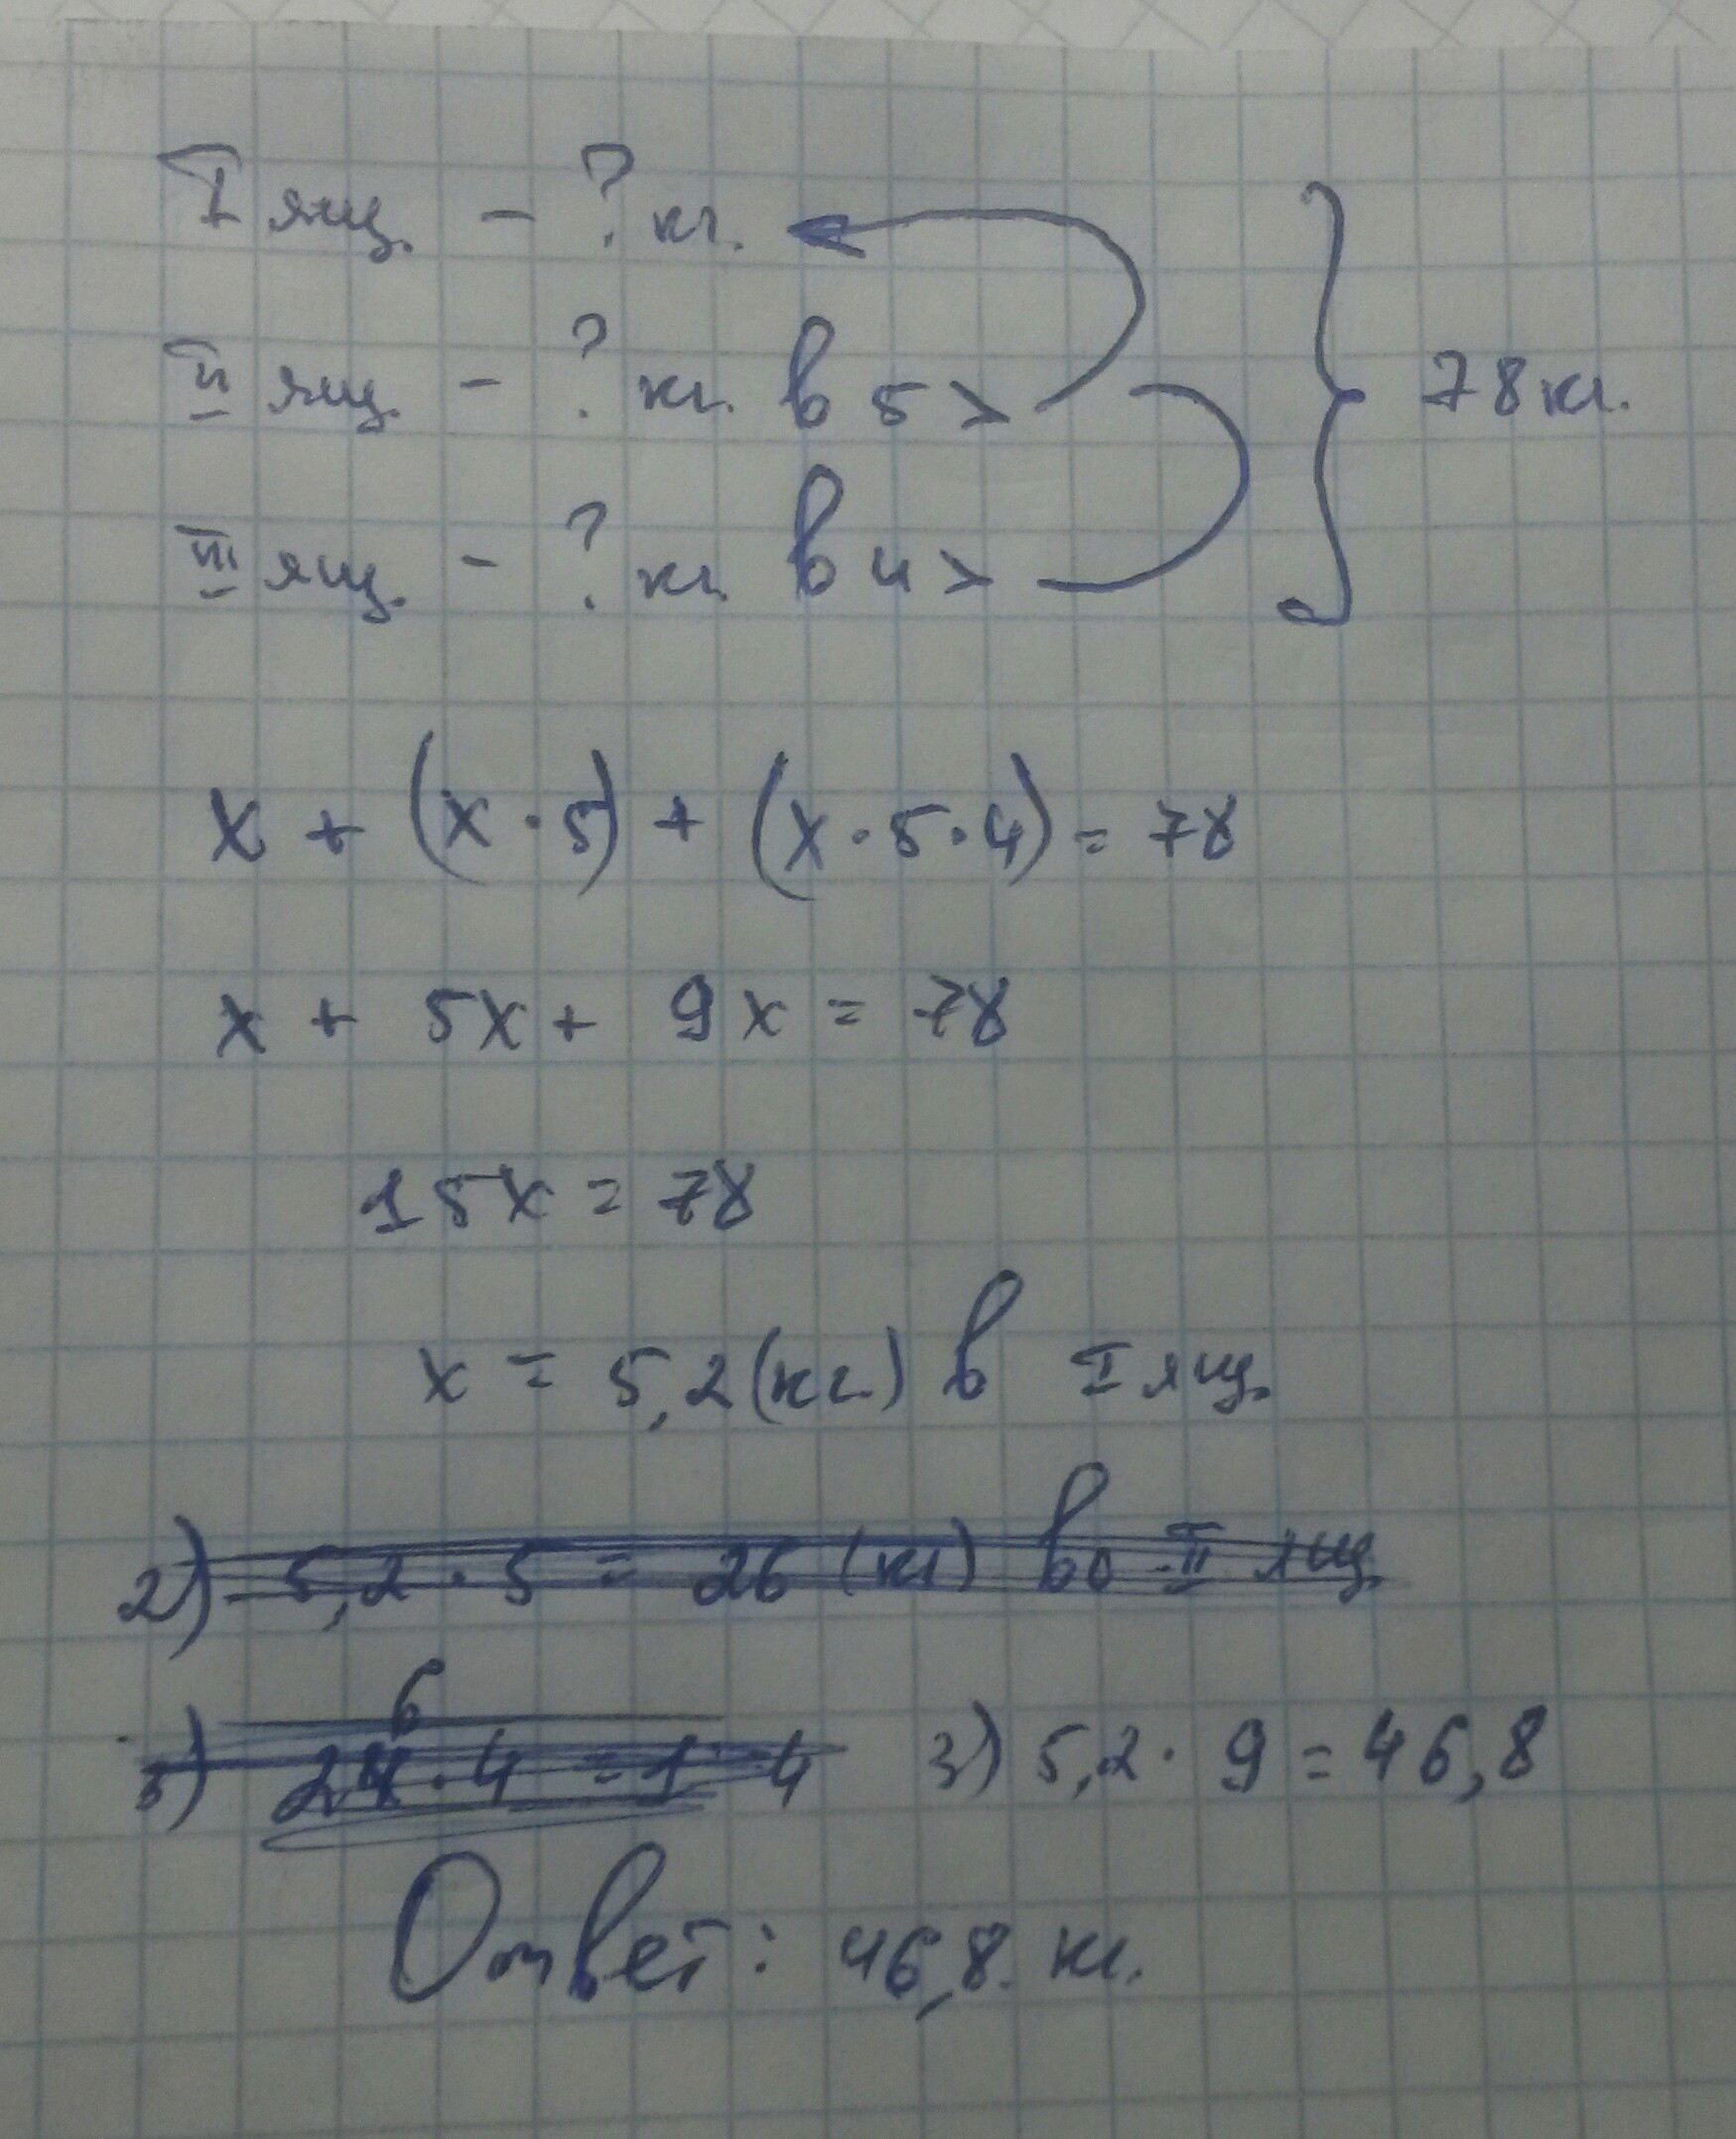 I ящ. - ? кг.
II ящ. - ? кг. в 5 >
III ящ. - ? кг. в 4 >
78 кг.
x + (x · 5) + (x · 5 · 4) = 78
x + 5x + 9x = 78
15x = 78
x = 5,2 (кг.) в I ящ.
2) 5,2 · 5 = 26 (кг) во II ящ.
3) 5,2 · 9 = 46,8
Ответ: 46,8 кг.